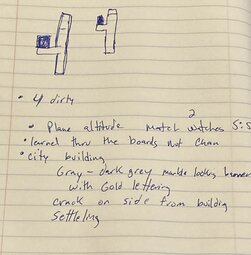 • 4 dirty
2
• Plane altitude match watches 5:5
• learned thru the boards not Chan
• city building
Gray - dark grey marble looking
with Gold lettering
crack on side from buildig
settleling